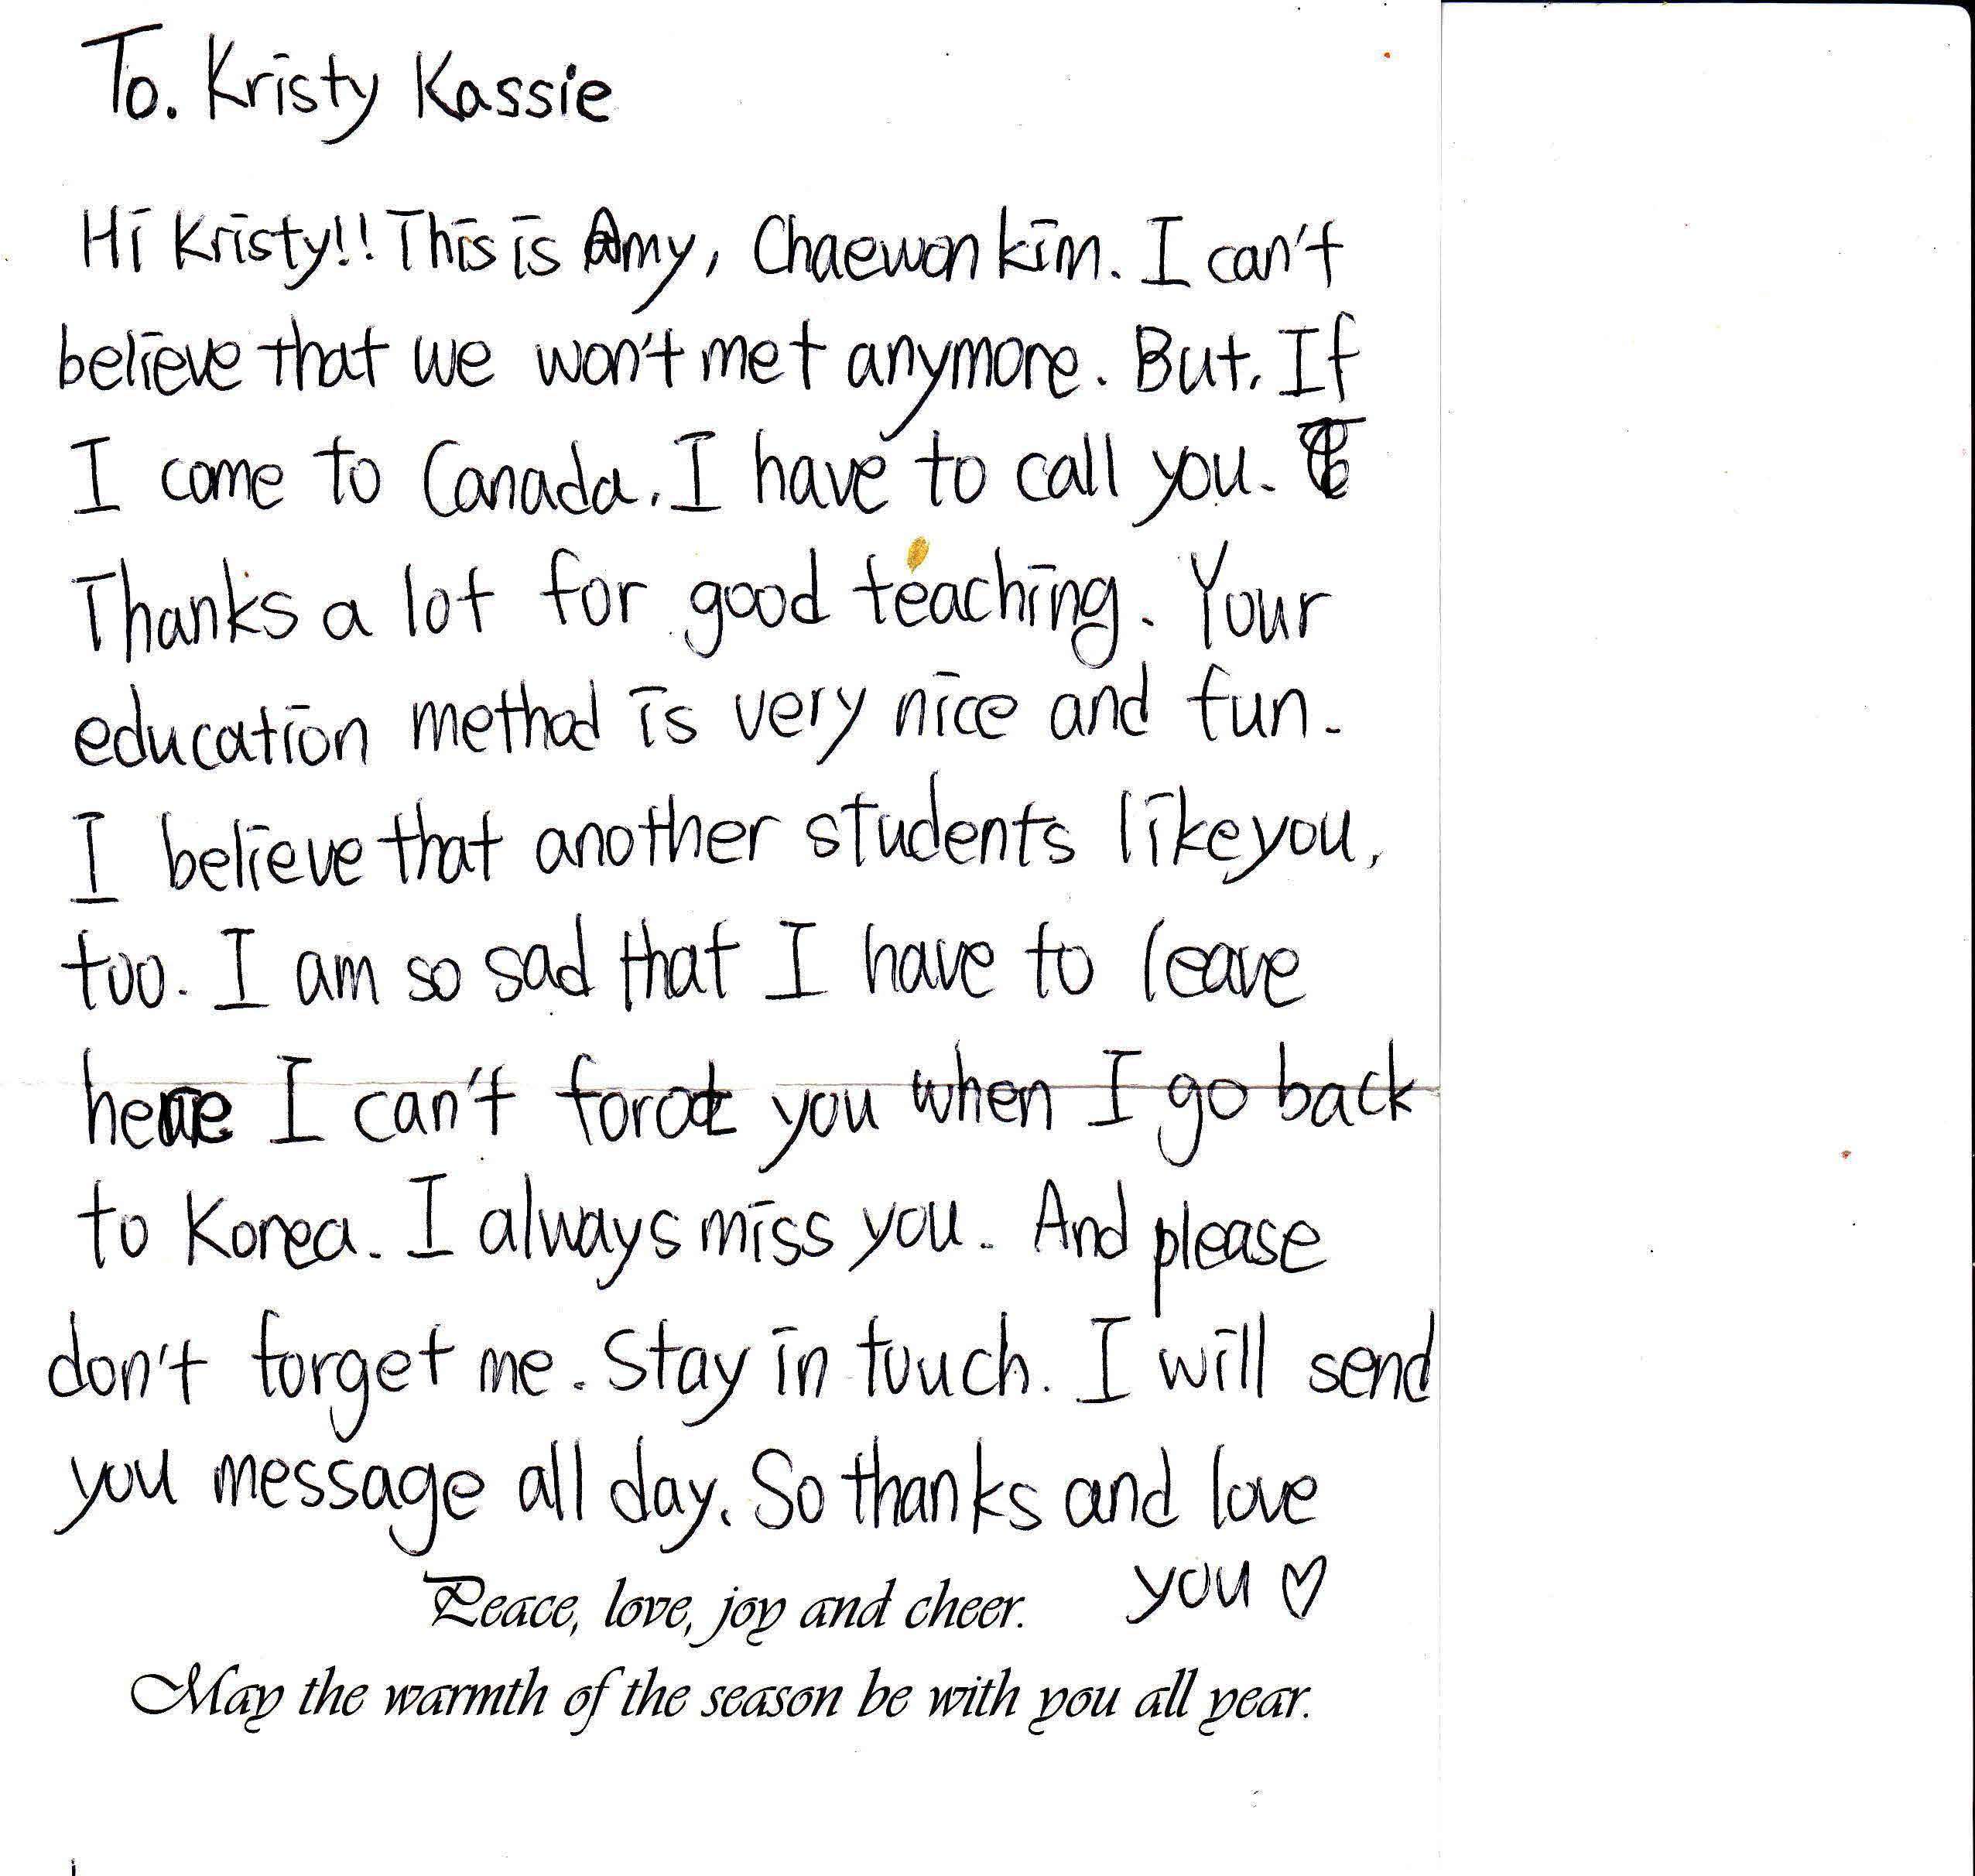 To. Kristy Kassie
Hi Kristy!! This is Amy, Chaewon kim. I can't
believe that we won't met anymore. But, If
I come to Canada, I have to call you.
Thanks a lot for good teaching. Your
education method is very nice and fun.
I believe that another students like you,
too. I am so sad that I have to leave
here I can't forot you when I go back
to Korea. I always miss you. And please
don't forget me. Stay in touch. I will send
you message all day. So thanks and love
you ♡
Peace, love, joy and cheer.
May the warmth of the season be with you all year.